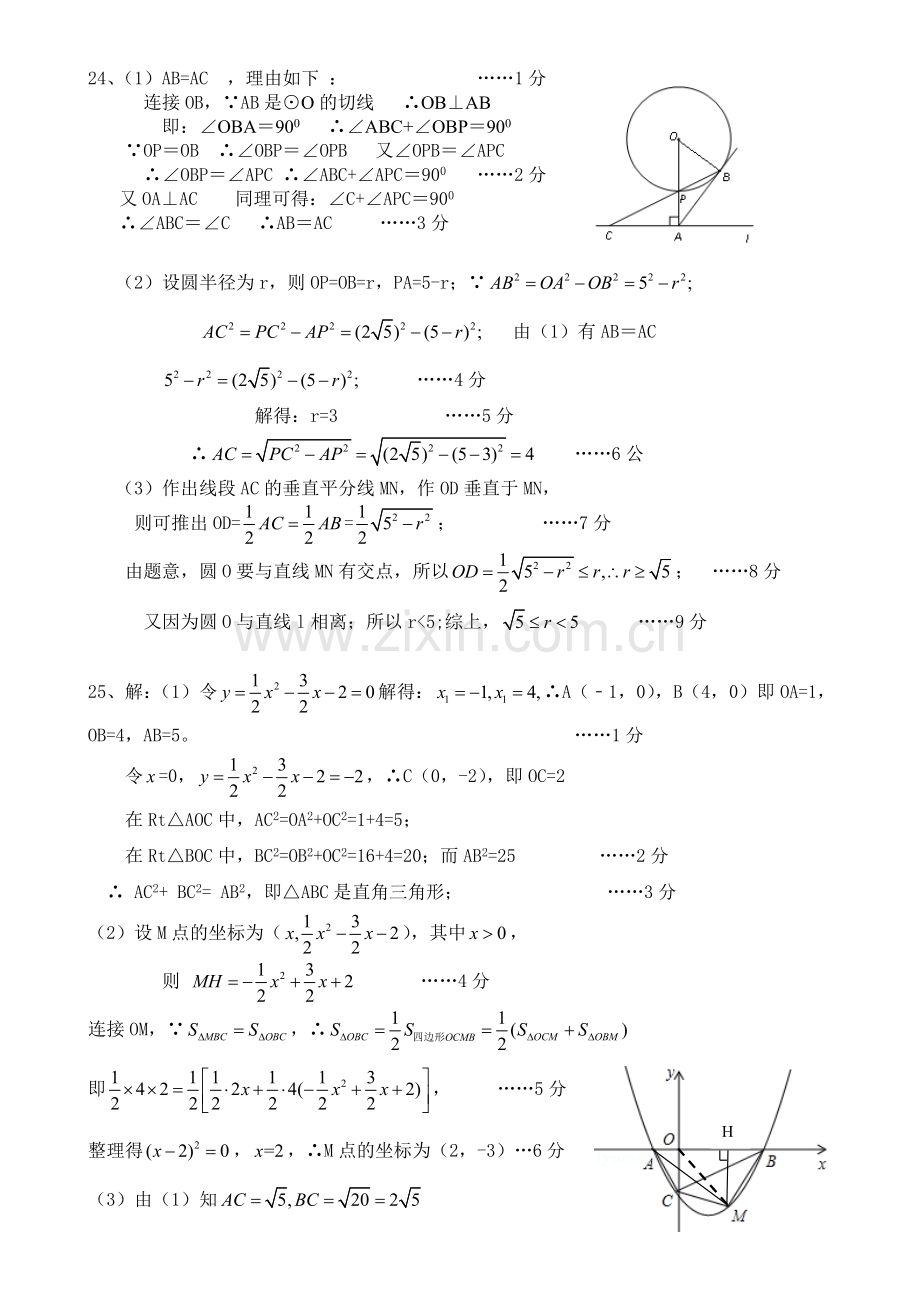 24、(1)AB=AC ,理由如下 : ……1分
连接OB,∵AB是⊙O的切线 ∴OB⊥AB
即:∠OBA=90⁰ ∴∠ABC+∠OBP=90⁰
∵OP=OB ∴∠OBP=∠OPB 又∠OPB=∠APC
∴∠OBP=∠APC ∴∠ABC+∠APC=90⁰ ……2分
又OA⊥AC 同理可得:∠C+∠APC=90⁰
∴∠ABC=∠C ∴AB=AC ……3分
O
B
P
C A l
(2)设圆半径为r,则OP=OB=r,PA=5-r;∵ AB²=OA²−OB²=5²−r²;
AC²=PC²−AP²=(2√5)²−(5−r)²; 由(1)有AB=AC
5²−r²=(2√5)²−(5−r)²; ……4分
解得:r=3 ……5分
∴AC=√(PC²−AP²)=√((2√5)²−(5−3)²)=4 ……6公
(3)作出线段AC的垂直平分线MN,作OD垂直于MN,
则可推出OD=1/2 AC=1/2 AB=1/2 √(5²−r²); ……7分
由题意,圆O要与直线MN有交点,所以OD=1/2 √(5²−r²)≤r,∴r≥√5; ……8分
又因为圆O与直线l相离;所以r<5;综上,√5≤r<5 ……9分
www.zixin.com.cn
25、解:(1)令y=1/2 x²−3/2 x−2=0解得:x₁=−1,x₁=4,∴A(﹣1,0),B(4,0)即OA=1,
OB=4,AB=5。 ……1分
令x=0,y=1/2 x²−3/2 x−2=−2,∴C(0,-2),即OC=2
在Rt△AOC中,AC²=OA²+OC²=1+4=5;
在Rt△BOC中,BC²=OB²+OC²=16+4=20;而AB²=25 ……2分
∴ AC²+ BC²= AB²,即△ABC是直角三角形; ……3分
(2)设M点的坐标为(x,1/2 x²−3/2 x−2),其中x>0,
则 MH=−1/2 x²+3/2 x+2 ……4分
连接OM,∵S△MBC=S△OBC,∴S△OBC=1/2 S四边形OCMB=1/2(S△OCM+S△OBM)
即1/2×4×2=1/2[1/2·2x+1/2·4(−1/2 x²+3/2 x+2)], ……5分
整理得(x−2)²=0,x=2,∴M点的坐标为(2,-3)…6分
(3)由(1)知AC=√5,BC=√20=2√5
y
O H
A B x
C
M